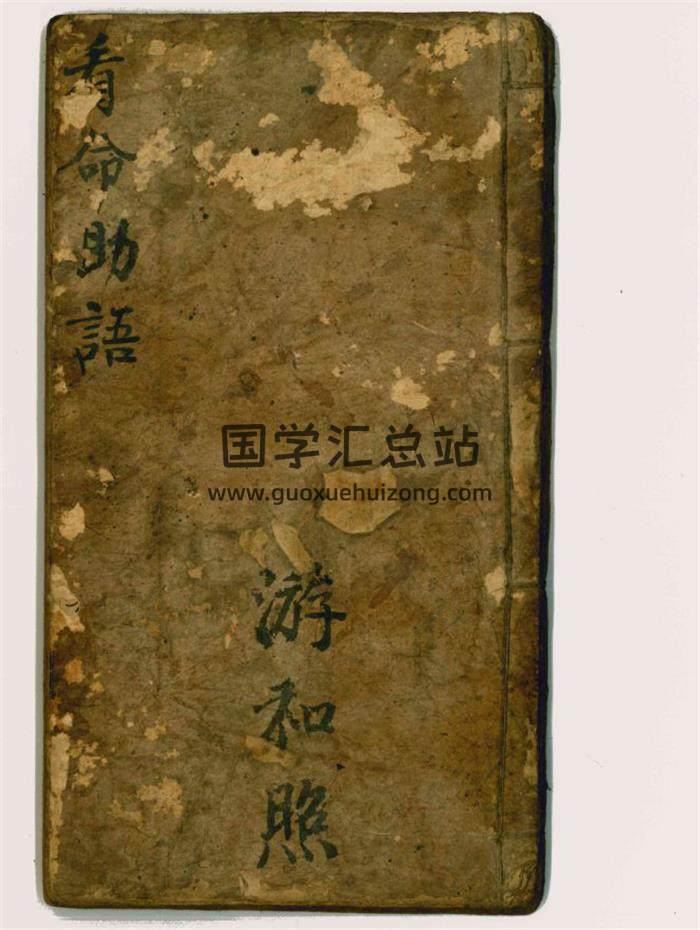 看命助語
国学汇总站
www.guoxuehuizong.com
游和照